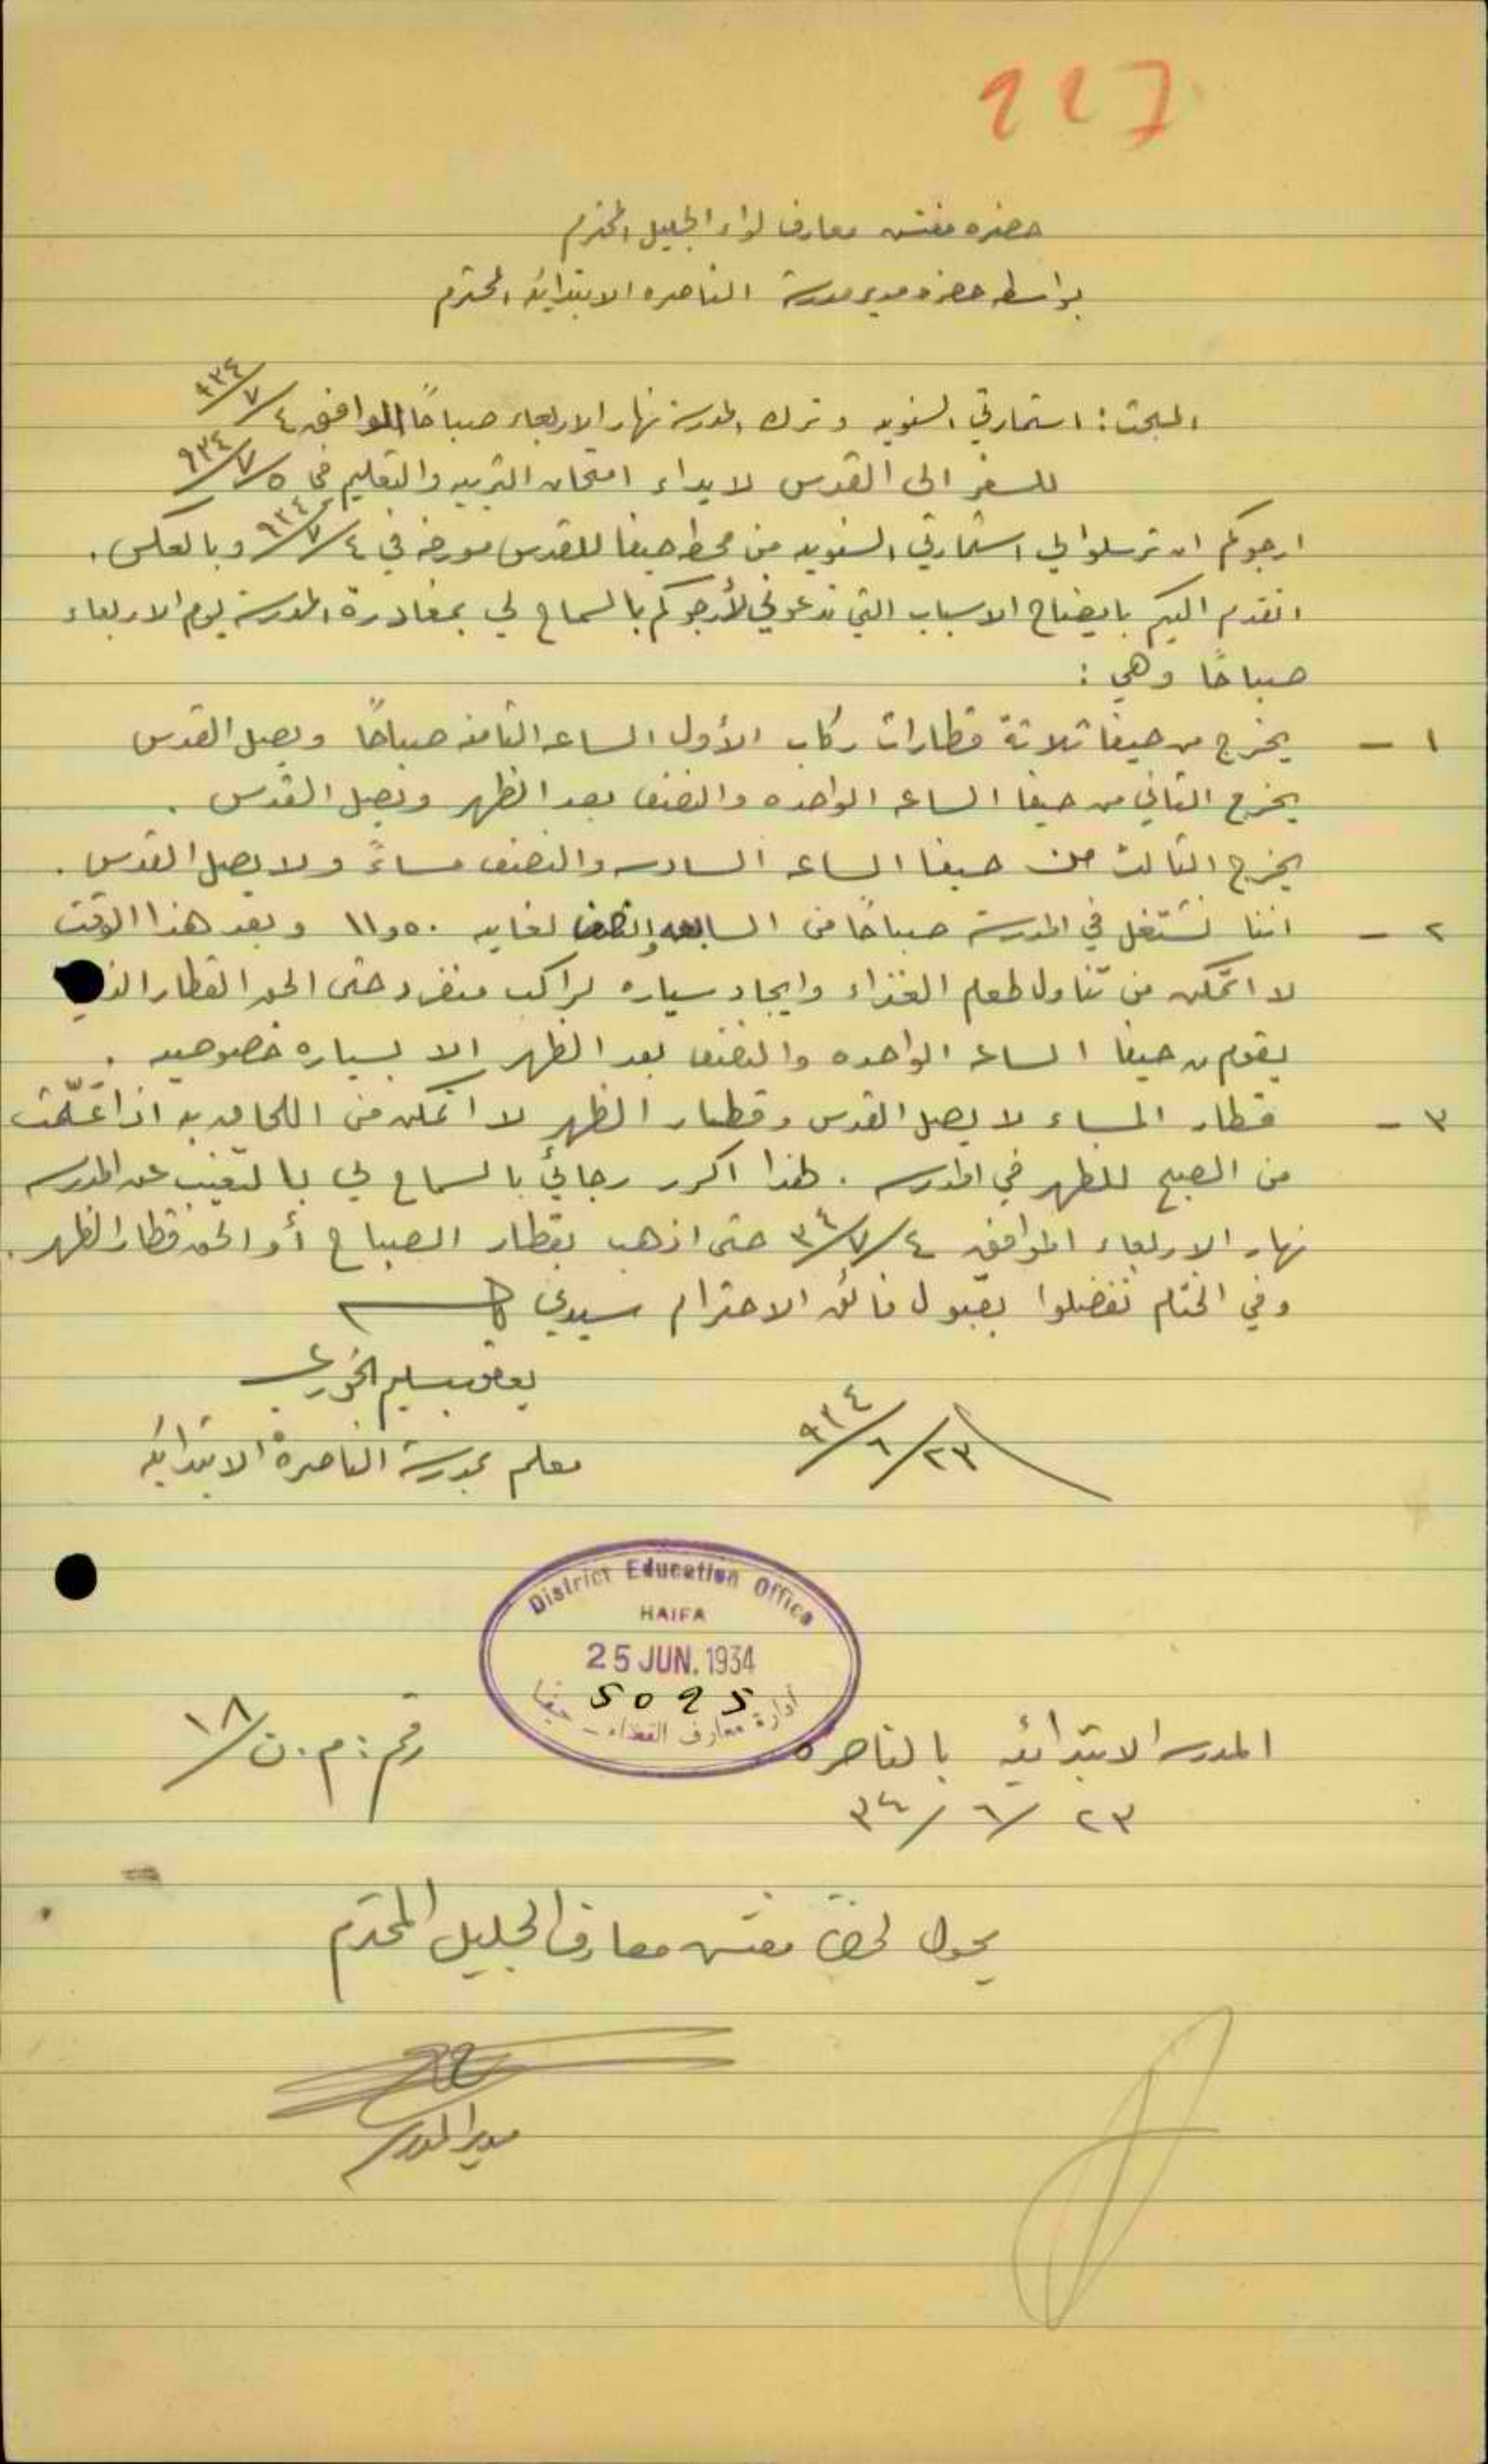 227
حضرة مفتش معارف لواء الجليل المحترم
بواسطة حضرة مدير مدرسة الناصره الابتدائيه المحترم
المبحث: استمارتي السنويه وترك المدرسة نهار الاربعاء صباحاً الموافق ٤/٧/٩٣٤
للسفر الى القدس لابداء امتحان التربيه والتعليم في ٥/٧/٩٣٤
ارجوكم ان ترسلوا لي استمارتي السنويه من محطة حيفا للقدس مورخه في ٤/٧/٩٣٤ وبالعكس.
اتقدم اليكم بايضاح الاسباب التي تدعوني لأرجوكم بالسماح لي بمغادرة المدرسة يوم الاربعاء
صباحاً وهي:
١ - يخرج من حيفا ثلاثة قطارات ركاب الأول الساعه الثامنه صباحاً ويصل القدس
يخرج الثاني من حيفا الساعه الواحده والنصف بعد الظهر ويصل القدس.
يخرج الثالث من حيفا الساعه السادسه والنصف مساءً ولا يصل القدس.
٢ - اننا نشتغل في المدرسة صباحاً من السابعه والنصف لغاية ١١و٥٠ وبعد هذا الوقت
لا اتمكن من تناول طعام الغذاء وايجاد سياره لراكب منفرد حتى الحق القطار الذي
يقوم من حيفا الساعه الواحده والنصف بعد الظهر الا بسياره خصوصيه.
٣ - قطار المساء لا يصل القدس وقطار الظهر لا اتمكن من اللحاق به اذا عَلّمت
من الصبح للظهر في المدرسه. لهذا اكرر رجائي بالسماح لي بالتغيب عن المدرسه
نهار الاربعاء الموافق ٤/٧/٣٤ حتى اذهب بقطار الصباح أو الحق قطار الظهر.
وفي الختام تفضلوا بقبول فائق الاحترام سيدي
يعقوب سليم الخوري
معلم بمدرسة الناصرة الابتدائيه
٢٣/٦/٩٣٤
District Education Office
HAIFA
25 JUN. 1934
5025
ادارة معارف القضاء - حيفا
المدرسه الابتدائيه بالناصره
رقم: م.ن/١٨
٢٣/٦/٣٤
يحول لحضرة مفتش معارف الجليل المحترم
مدير المدرسه